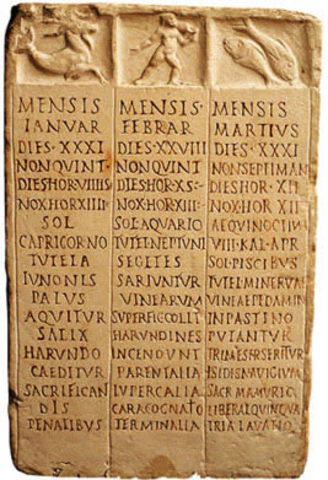 MENSIS
IANVAR
DIES·XXXI
NONQVINT
DIESHORVIIIIS
NOXHORXIIII·
SOL
CAPRICORNO
TVTELA
IVNONIS
PALVS
AQVITVR
SALIX
HARVNDO
CAEDITVR
SACRIFICAN
DIS
PENATIBVS
MENSIS·
FEBRAR
DIES·XXVIII
NONQVINT
DIESHOR·XS:-
NOXHORXIII:-
SOL·AQVARIO
TVTEL·NEPTVNI
SEGETES
SARIVNTVR
VINEARVM
SVPERFIC·COLIT
HARVNDINES
INCENDVNT
PARENTALIA
LVPERCALIA
CARACOGNATO
TERMINALIA
MENSIS
MARTIVS
DIES·XXXI
NONSEPTIMAN
DIESHOR·XII
NOX·HOR·XII
AEQVINOCTIVM
VIII·KAL·APR
SOL·PISCIBVS
TVTEL·MINERVAE
VINEAEPEDAMIN
INPASTINO
PVTANTVR
TRIMESTRSERITVR
ISIDISNAVIGIVM
SACR·MAMVRIO
LIBERAL·QVINQVA
TRIA·LAVATIO